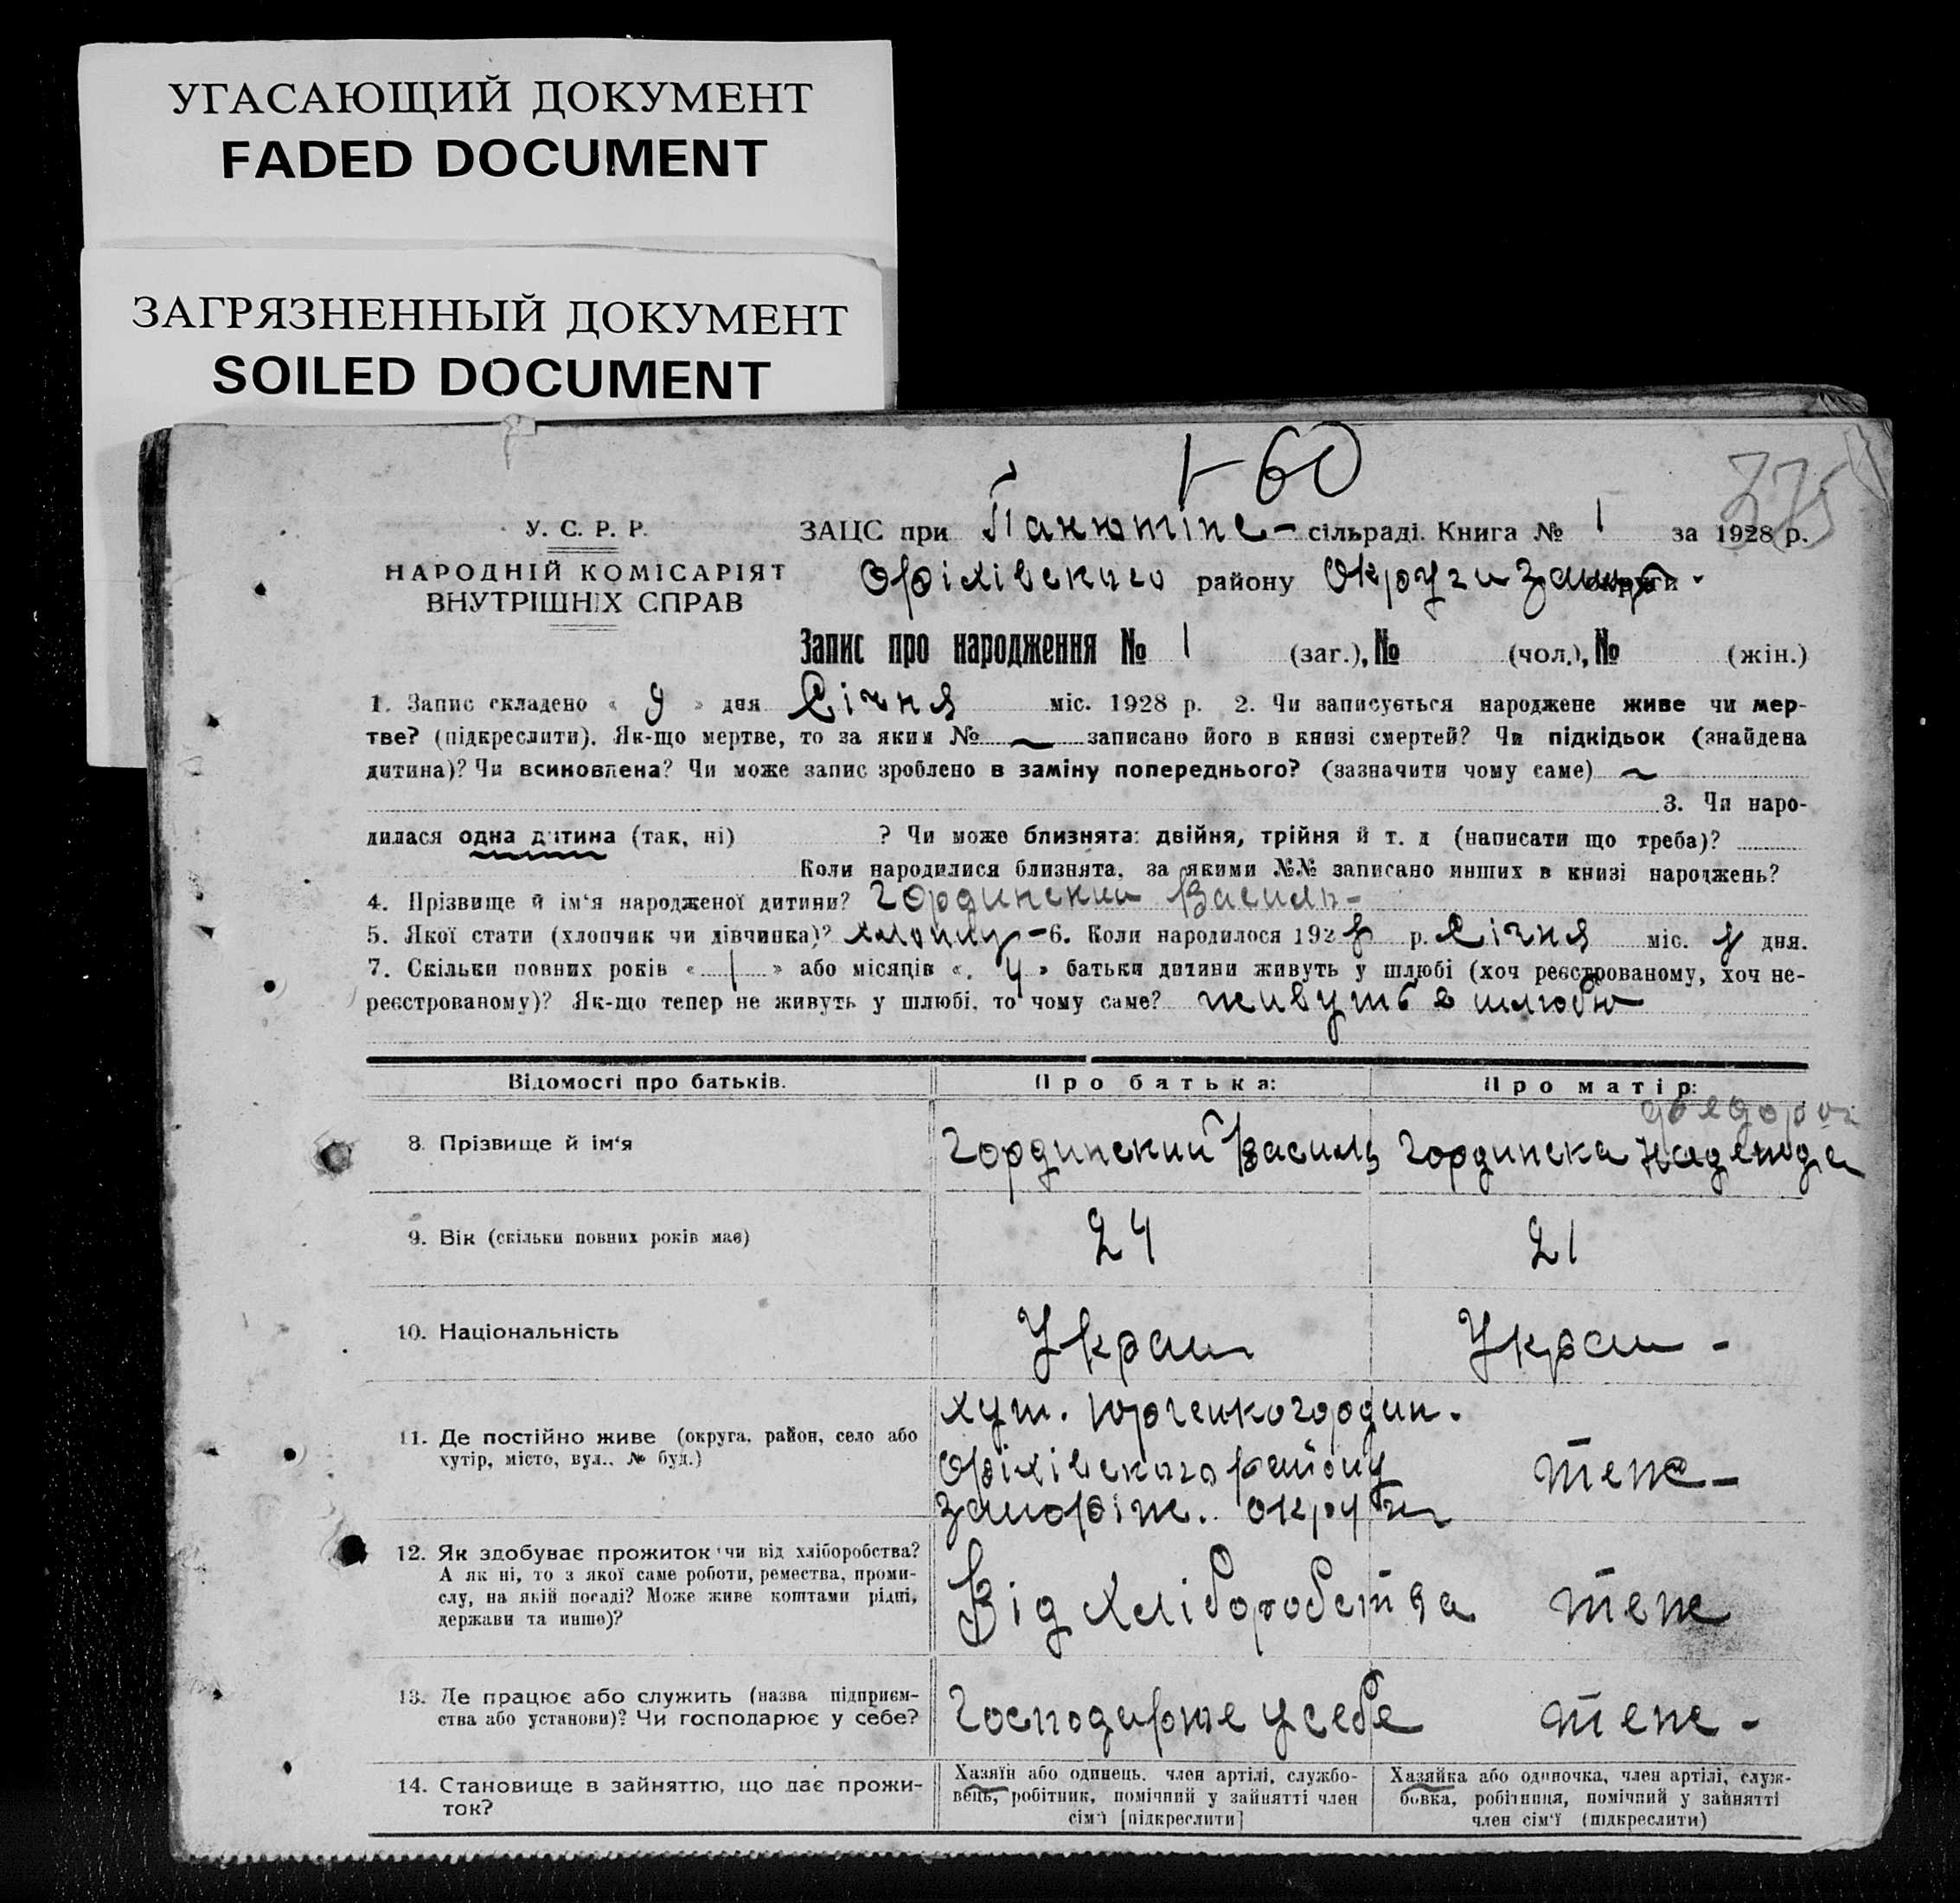 УГАСАЮЩИЙ ДОКУМЕНТ
FADED DOCUMENT
ЗАГРЯЗНЕННЫЙ ДОКУМЕНТ
SOILED DOCUMENT
1-60
375
У. С. Р. Р.
НАРОДНІЙ КОМІСАРІЯТ
ВНУТРІШНІХ СПРАВ
ЗАЦС при Панютіне- сільраді. Книга № 1 за 1928 р.
Оріхівского району Округи
Запис про народження № 1 (заг.), № (чол.), № (жін.)
1. Запис складено « 9 » дня Січня міс. 1928 р. 2. Чи записується народжене живе чи мер-
тве? (підкреслити). Як-що мертве, то за яким № записано його в книзі смертей? Чи підкідьок (знайдена
дитина)? Чи всиновлена? Чи може запис зроблено в заміну попереднього? (зазначити чому саме)
3. Чи наро-
дилася одна дитина (так, ні) ? Чи може близнята: двійня, трійня й т. д (написати що треба)?
Коли народилися близнята, за якими №№ записано инших в книзі народжень?
4. Прізвище й ім'я народженої дитини? Гординский Василь-
5. Якої стати (хлопчик чи дівчинка)? - 6. Коли народилося 1928 р. Січня міс. дня.
7. Скільки повних років « 1 » або місяців « 4 » батьки дитини живуть у шлюбі (хоч реєстрованому, хоч не-
реєстрованому)? Як-що тепер не живуть у шлюбі, то чому саме? живуть в шлюбю
Відомості про батьків. Про батька: Про матір:
8. Прізвище й ім'я Гординский Василь Гординска Надежда
9. Вік (скільки повних років має) 24 21
10. Національність Украи Украи -
11. Де постійно живе (округа, район, село або
хутір, місто, вул., № буд.)
хут.
Оріхівского району
Запоріж. округи
теж-
12. Як здобуває прожиток чи від хліборобства?
А як ні, то з якої саме роботи, ремества, проми-
слу, на якій посаді? Може живе коштами рідні,
держави та инше)?
Від хліборобства теж
13. Де працює або служить (назва підприєм-
ства або установи)? Чи господарює у себе?
Господарює у себе теж -
14. Становище в зайняттю, що дає прожи-
ток?
Хазяїн або одинець, член артілі, службо-
вець, робітник, помічний у зайнятті член
сім'ї [підкреслити]
Хазяйка або одиночка, член артілі, служ-
бовка, робітниця, помічний у зайнятті
член сім'ї (підкреслити)